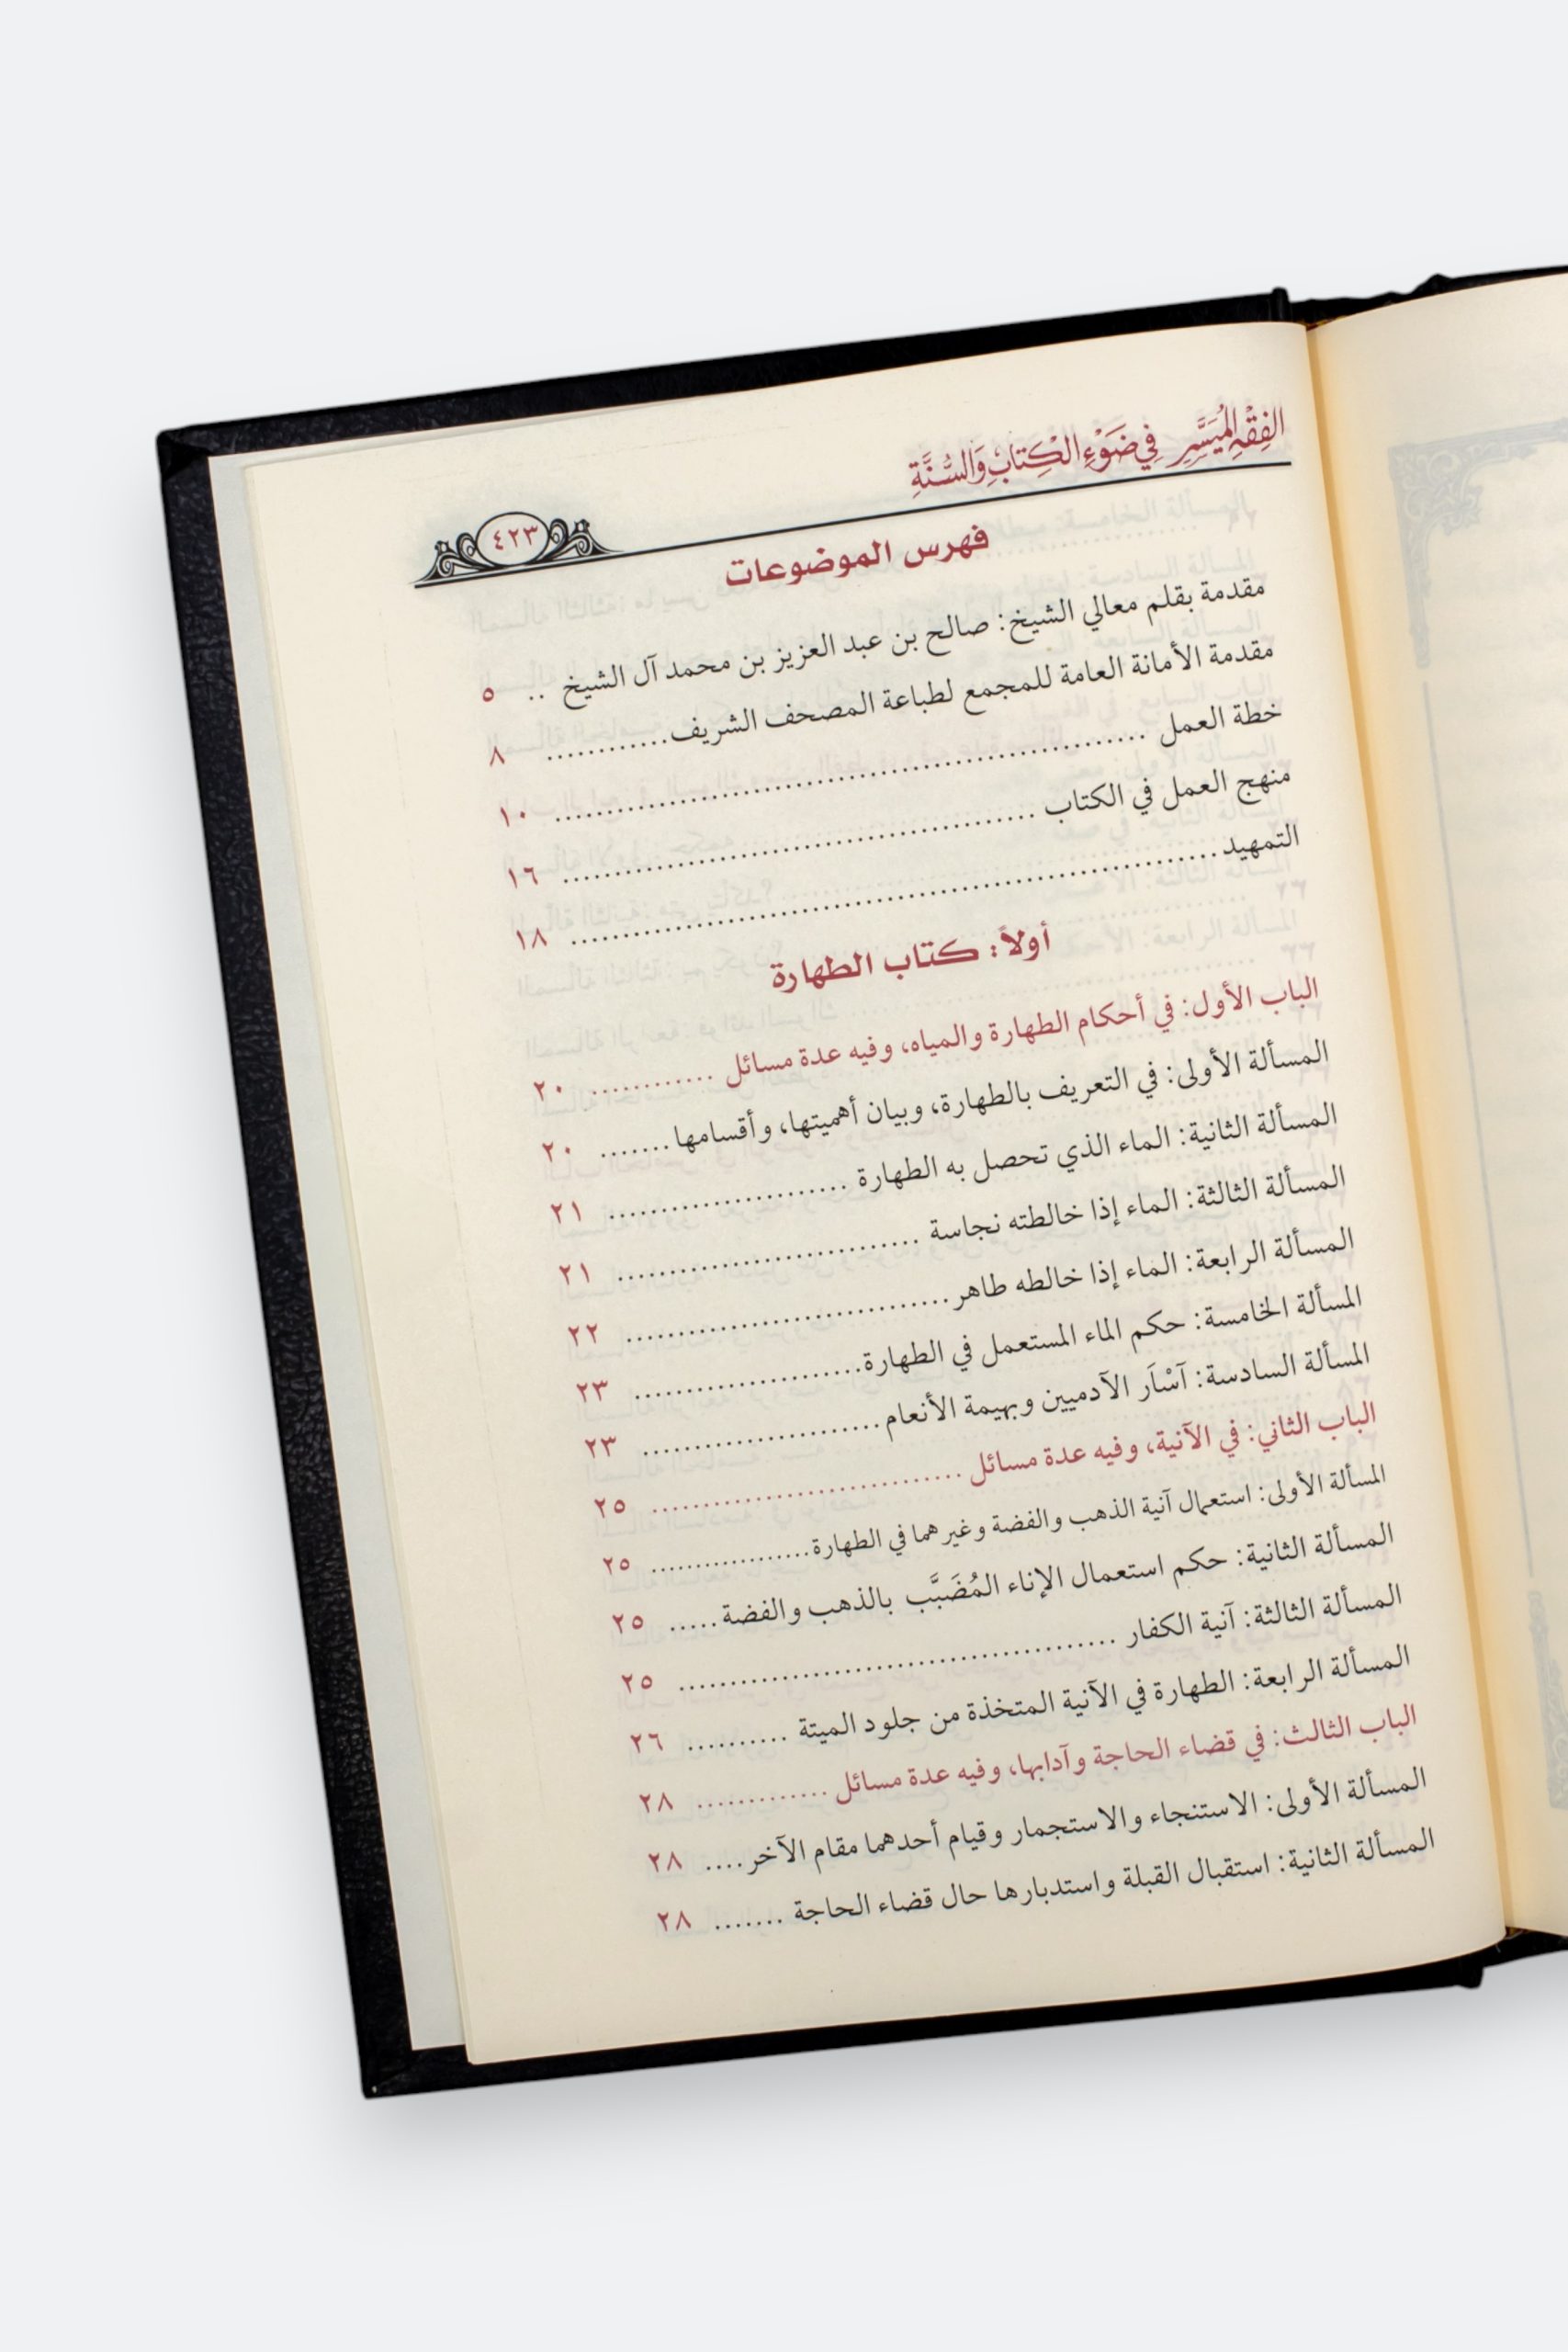 الفِقْهِ المُيَسَّرِ في ضَوْءِ الكِتَابِ وَالسُّنَّةِ
٤٢٣
فهرس الموضوعات
مقدمة بقلم معالي الشيخ: صالح بن عبد العزيز بن محمد آل الشيخ .. ٥
مقدمة الأمانة العامة للمجمع لطباعة المصحف الشريف............ ٨
خطة العمل .............................................. ١٠
منهج العمل في الكتاب ..................................... ١٦
التمهيد.................................................. ١٨
أولاً: كتاب الطهارة
الباب الأول: في أحكام الطهارة والمياه، وفيه عدة مسائل ............ ٢٠
المسألة الأولى: في التعريف بالطهارة، وبيان أهميتها، وأقسامها....... ٢٠
المسألة الثانية: الماء الذي تحصل به الطهارة ....................... ٢١
المسألة الثالثة: الماء إذا خالطته نجاسة ............................. ٢١
المسألة الرابعة: الماء إذا خالطه طاهر............................... ٢٢
المسألة الخامسة: حكم الماء المستعمل في الطهارة...................... ٢٣
المسألة السادسة: آسْاَر الآدميين وبهيمة الأنعام....................... ٢٣
الباب الثاني: في الآنية، وفيه عدة مسائل .............................. ٢٥
المسألة الأولى: استعمال آنية الذهب والفضة وغيرهما في الطهارة.................. ٢٥
المسألة الثانية: حكم استعمال الإناء المُضَبَّب بالذهب والفضة..... ٢٥
المسألة الثالثة: آنية الكفار .......................................... ٢٥
المسألة الرابعة: الطهارة في الآنية المتخذة من جلود الميتة .......... ٢٦
الباب الثالث: في قضاء الحاجة وآدابها، وفيه عدة مسائل ............. ٢٨
المسألة الأولى: الاستنجاء والاستجمار وقيام أحدهما مقام الآخر.... ٢٨
المسألة الثانية: استقبال القبلة واستدبارها حال قضاء الحاجة ....... ٢٨